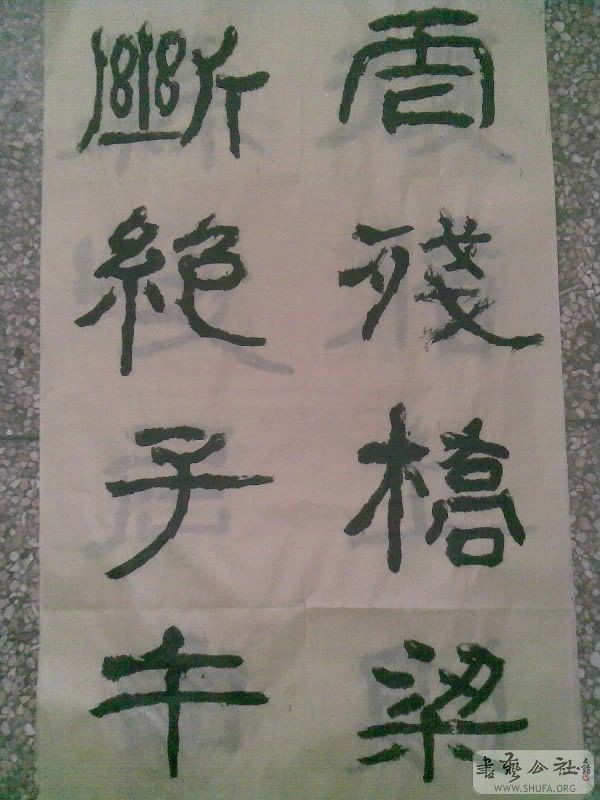 虐殘橋梁
斷絕子午
書藝公社
WWW.SHUFA.ORG